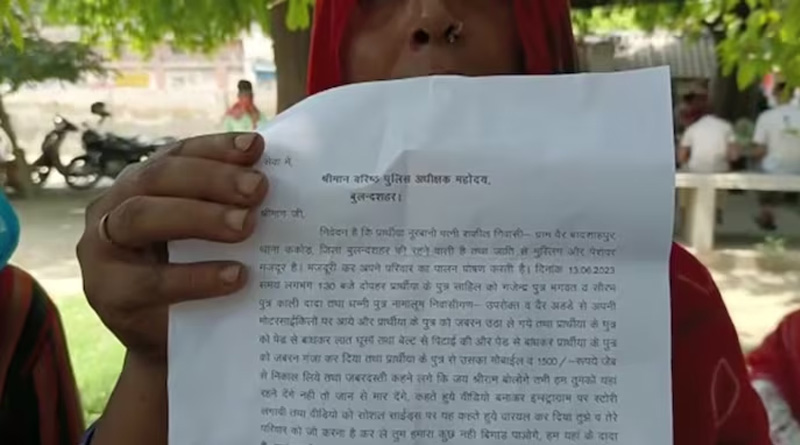 सेवा में,
श्रीमान वरिष्ठ पुलिस अधीक्षक महोदय,
बुलन्दशहर।
श्रीमान जी,
निवेदन है कि प्रार्थीया नूरबानो पत्नी शकील निवासी– ग्राम वैर बादशाहपुर
थाना ककोड, जिला बुलन्दशहर की रहने वाली है तथा जाति से मुस्लिम और पेशेवर
मजदूर है। मजदूरी कर अपने परिवार का पालन पोषण करती है। दिनांक 13.06.2023
समय लगभग 1:30 बजे दोपहर प्रार्थीया के पुत्र साहिल को गजेन्द्र पुत्र भगवत व सौरभ
पुत्र काली दादा तथा धन्नी पुत्र नामालूम निवासीगण– उपरोक्त व वैर अडडे से अपनी
मोटरसाईकिलों पर आये और प्रार्थीया के पुत्र को जबरन उठा ले गये तथा प्रार्थीया के पुत्र
को पेड से बांधकर लात घूस्सें तथा बेल्ट से पिटाई की और पेड से बांधकर प्रार्थीया के पुत्र
को जबरन गंजा कर दिया तथा प्रार्थीया के पुत्र से उसका मोबाईल व 1500/–रूपये जेब
से निकाल लिये तथा जबरदस्ती कहने लगे कि जय श्रीराम बोलोगे तभी हम तुमको यहां
रहने देंगे नही तो जान से मार देंगे, कहते हुये वीडियो बनाकर इन्स्ट्राग्राम पर स्टोरी
लगायी तथा वीडियो को सोशल साईड्स पर यह कहते हुये वायरल कर दिया तुझे व तेरे
परिवार को जो करना है कर ले तुम हमारा कुछ नही बिगाड पाओगे, हम यहां के दादा